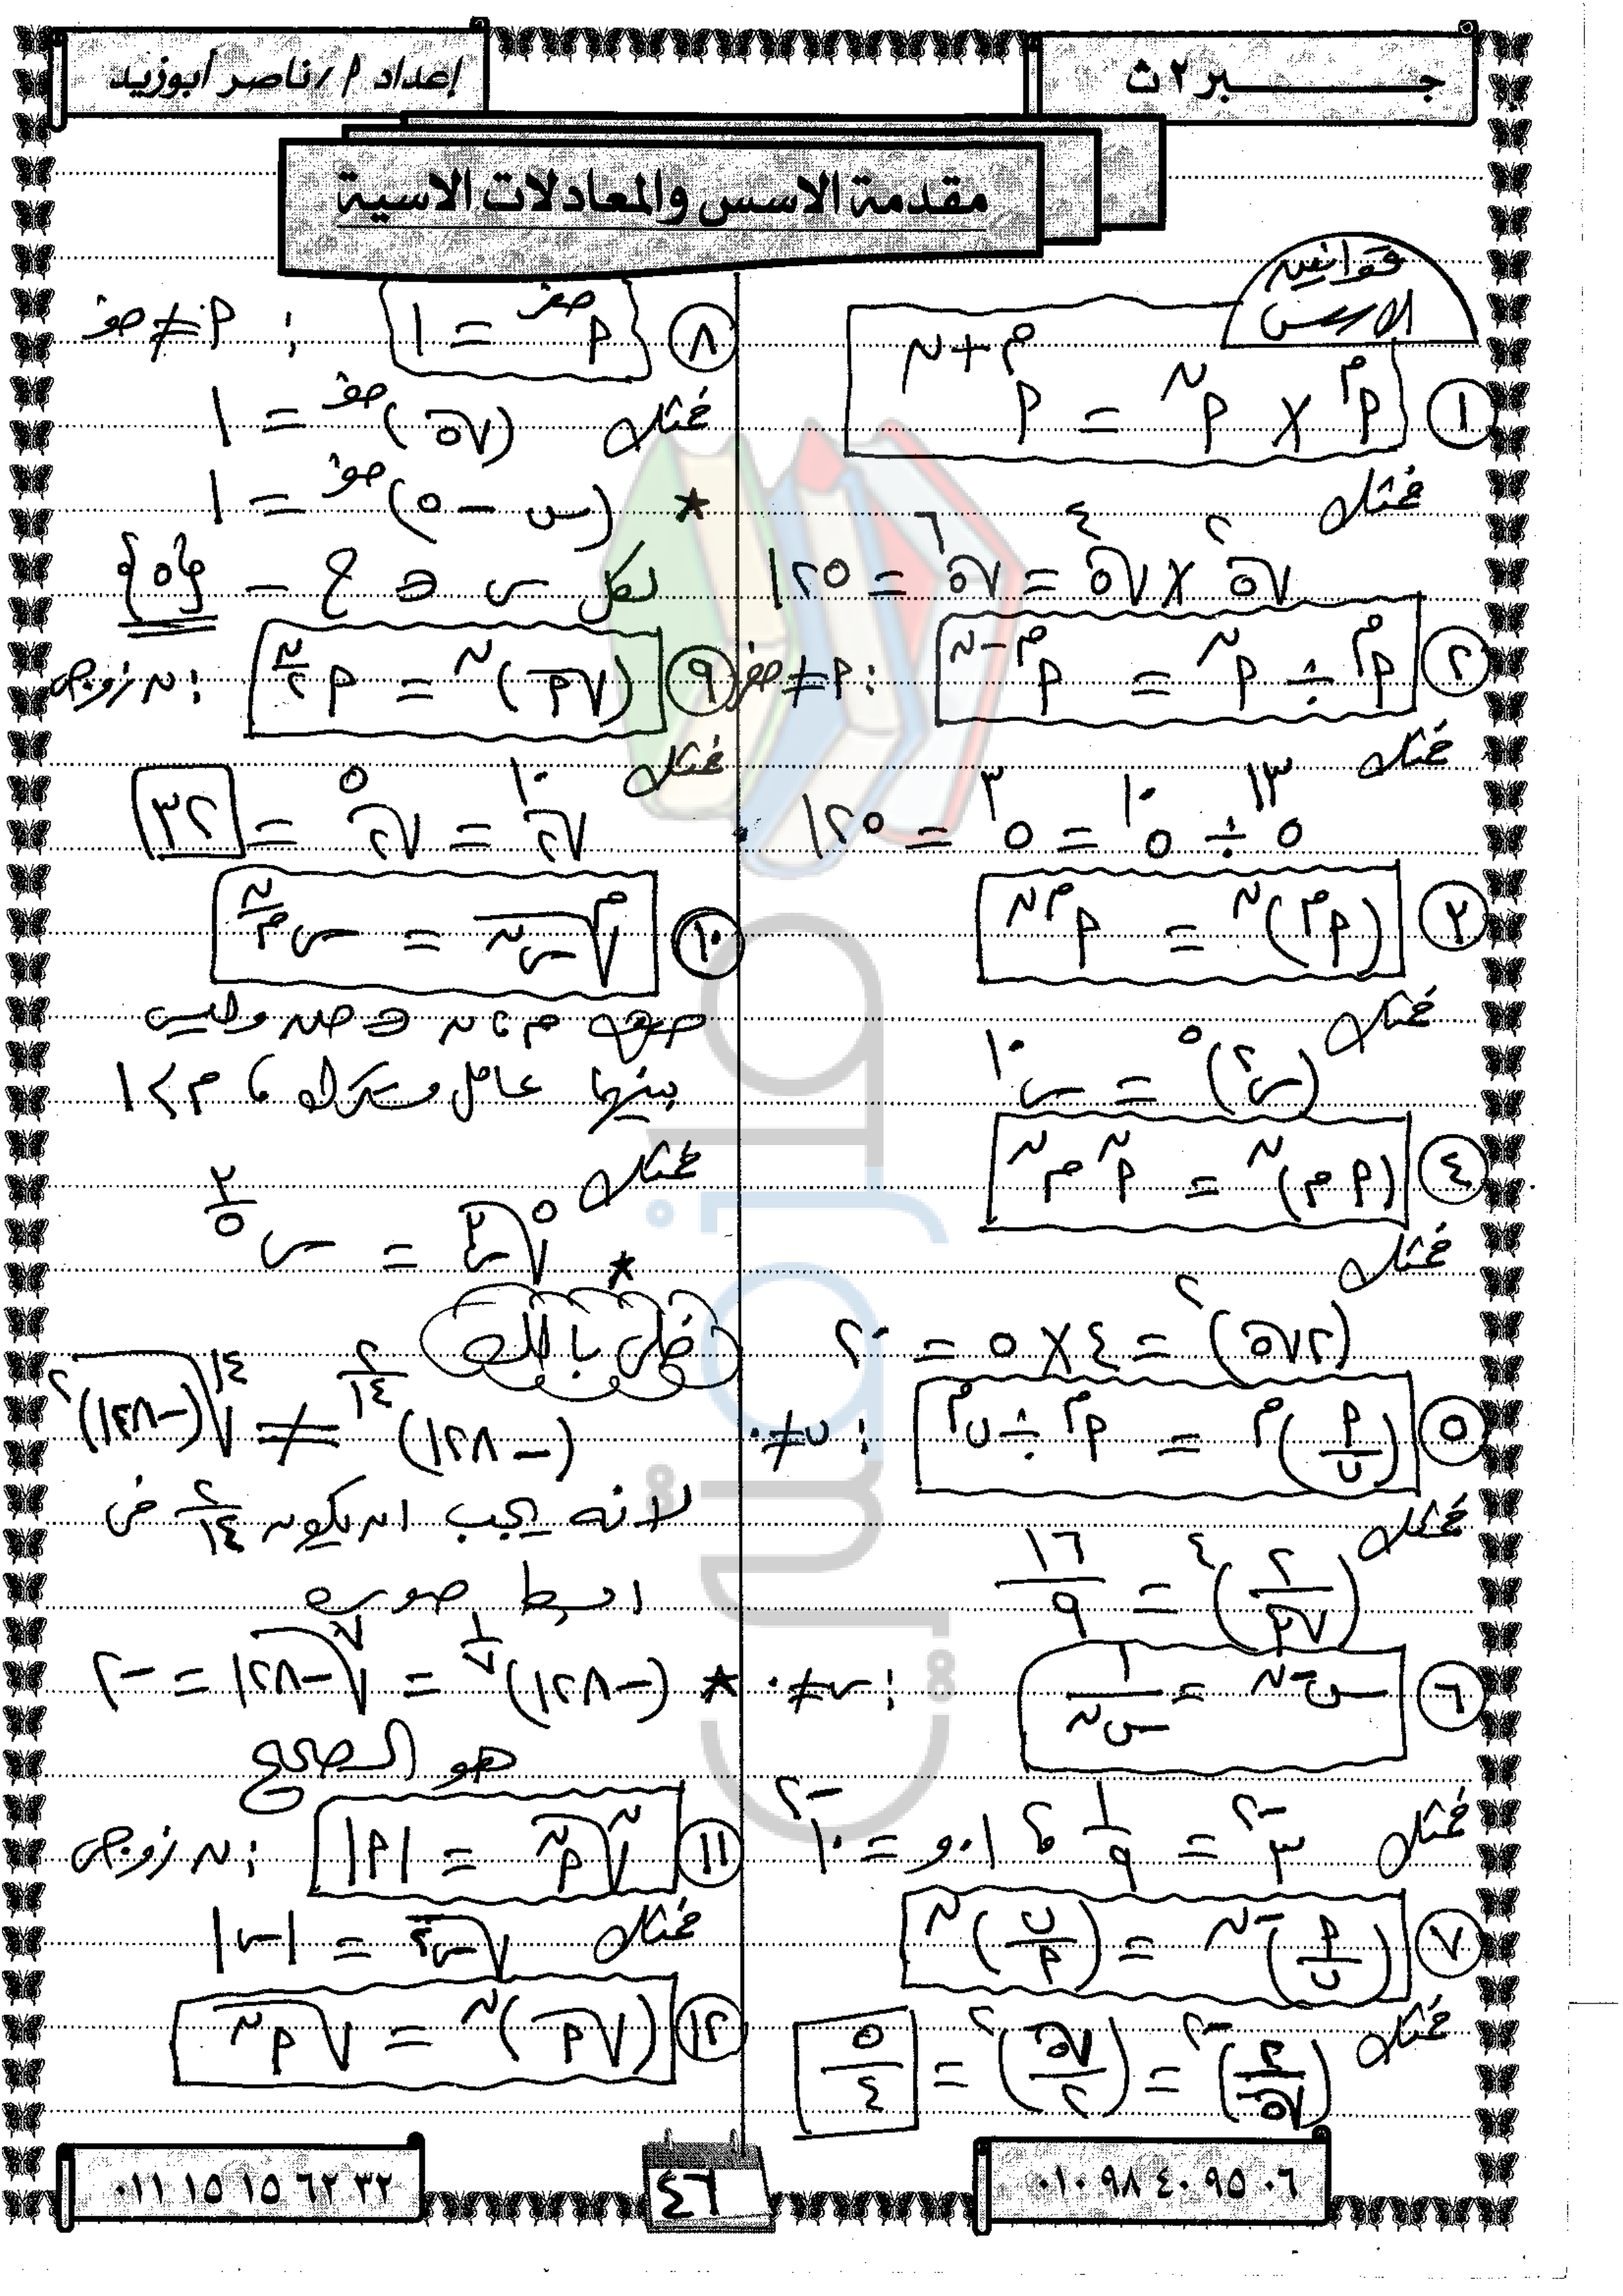 جـــبر ٢ ث
إعداد م/ ناصر أبوزيد
مقدمة الاسس والمعادلات الاسية
قوانين
الاسس
① م^أ × أ^ن = أ^(م+ن)
فمثلا
√٥^٢ × √٥^٤ = √٥^٦ = ١٢٥
② أ^م ÷ أ^ن = أ^(م-ن) ؛ أ ≠ صفر
فمثلا
٥^١٣ ÷ ٥^١٠ = ٥^٣ = ١٢٥
③ (أ^م)^ن = أ^(م ن)
فمثلا
(س^٢)^٥ = س^١٠
④ (أ م)^ن = أ^ن م^ن
فمثلا
(٢√٥)^٢ = ٤ × ٥ = ٢٠
⑤ (أ/ب)^م = أ^م ÷ ب^م ؛ ب ≠ ٠
فمثلا
(٢/√٣)^٤ = ١٦/٩
⑥ س^-ن = ١/س^ن ؛ س ≠ ٠
فمثلا ٣^-٢ = ١/٩ ، ٠,٠١ = ١٠^-٢
⑦ (أ/ب)^-ن = (ب/أ)^ن
فمثلا
(٢/√٥)^-٢ = (√٥/٢)^٢ = ٥/٤
⑧ أ^صفر = ١ ؛ أ ≠ صفر
فمثلا (√٥)^صفر = ١
★ (س - ٥)^صفر = ١
لكل س ∈ ح - {٥}
⑨ (√أ)^ن = أ^(ن/٢) ؛ ن زوجى
فمثلا
√٢^١٠ = ٢^٥ = ٣٢
⑩ م√س^ن = س^(ن/م)
حيث م ، ن ∈ صہ وليس
بينهما عامل مشترك ، م > ١
فمثلا
★ ٥√س^٣ = س^(٣/٥)
خلى بالك
(-١٢٨)^(٢/١٤) ≠ ١٤√(-١٢٨)^٢
لانه يجب ان يكون ٢/١٤ فى
ابسط صورة
★ (-١٢٨)^(١/٧) = ٧√-١٢٨ = -٢
هو الصحيح
⑪ ن√أ^ن = |أ| ؛ ن زوجى
فمثلا √س^٢ = |س|
⑫ (√أ)^ن = √أ^ن
٠١٠ ٩٨ ٤٠ ٩٥ ٠٦
٤٦
٠١١ ١٥ ١٥ ٦٢ ٣٢